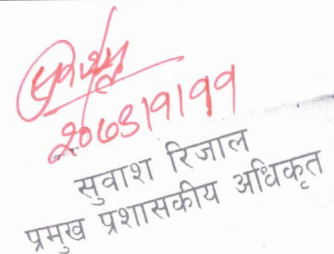 २०७३।९।११
सुवाश रिजाल
प्रमुख प्रशासकीय अधिकृत